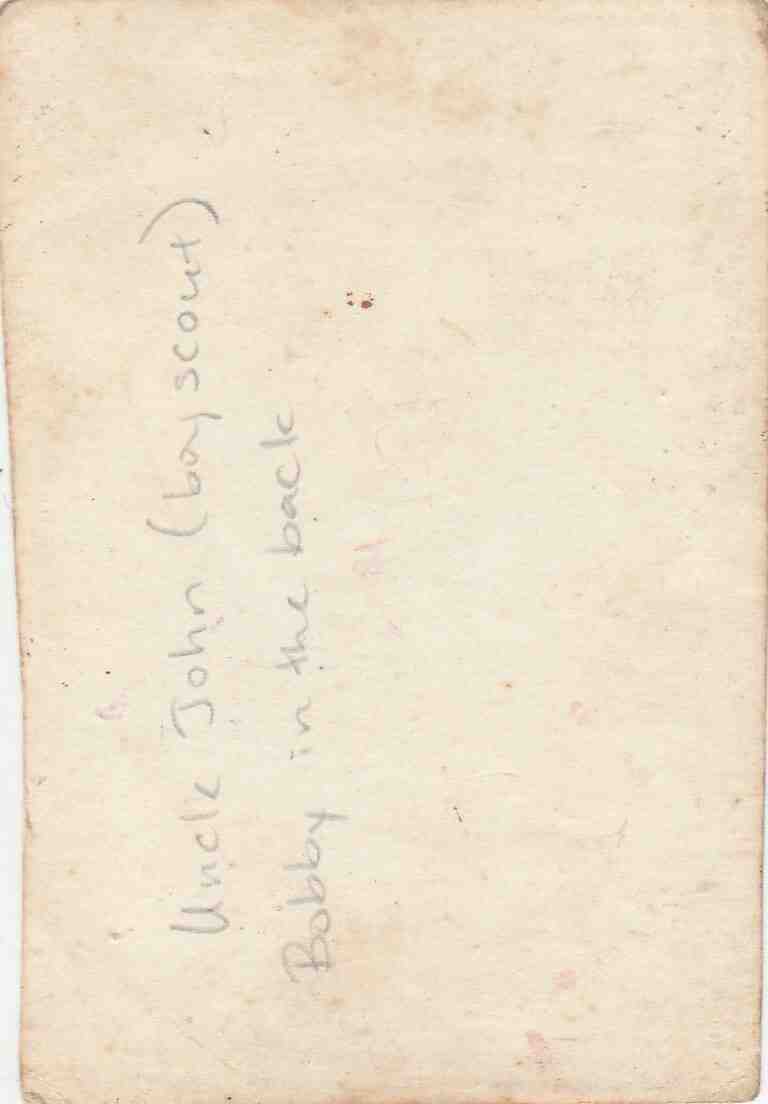 Uncle John (boy scout)
Bobby in the back